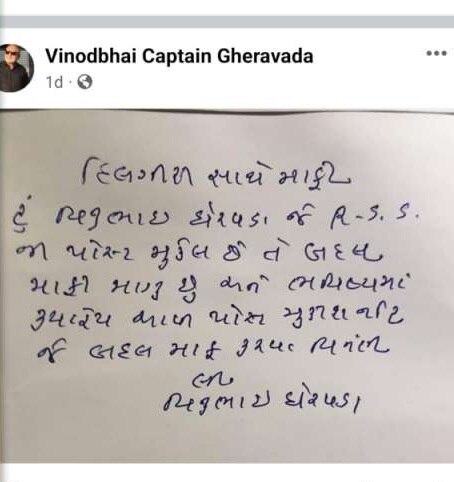 Vinodbhai Captain Gheravada
1d
દિલગીરી સાથે માફી
હું વિનુભાઇ ઘેરાવડા જે R.S.S.
ની પોસ્ટ મુકેલ છે તે બદલ
માફી માગુ છુ અને ભવિષ્યમાં
ક્યારેય આવી પોસ્ટ મુકીશ નહિ
જે બદલ માફ કરવા વિનંતી
લી
વિનુભાઇ ઘેરાવડા